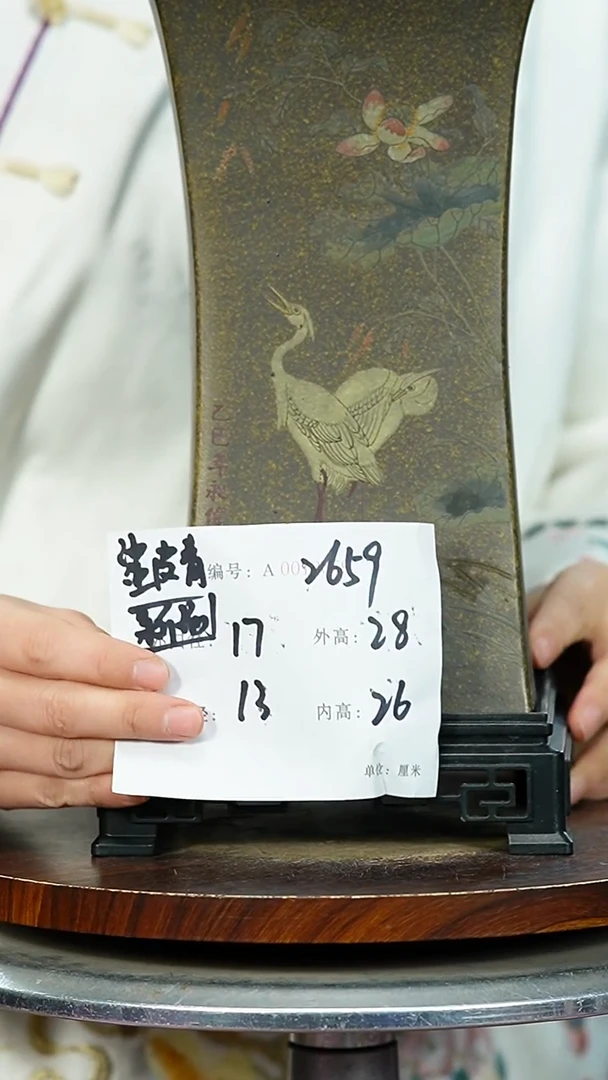 乙巳年永
蟹皮青 编号: A 00 2659
17 外高: 28
径: 13 内高: 26
单位: 厘米